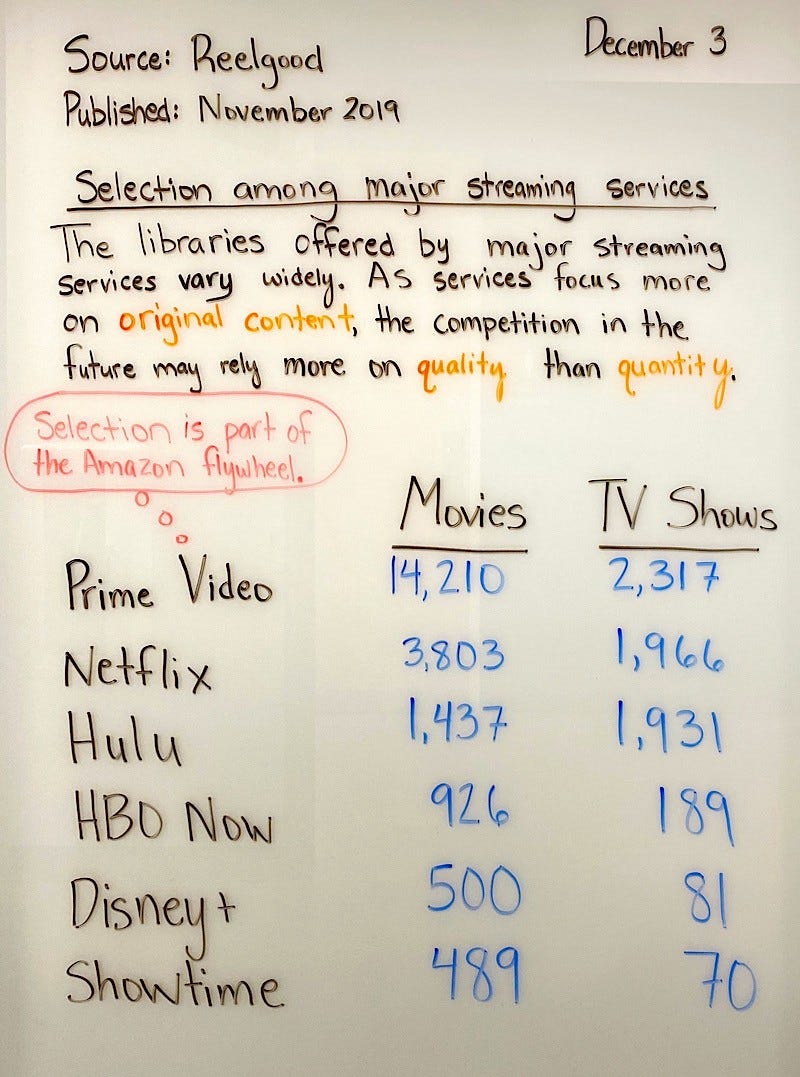 Source: Reelgood
December 3
Published: November 2019
Selection among major streaming services
The libraries offered by major streaming
services vary widely. As services focus more
on original content, the competition in the
future may rely more on quality than quantity.
Selection is part of
the Amazon flywheel.
Movies TV Shows
Prime Video 14,210 2,317
Netflix 3,803 1,966
Hulu 1,437 1,931
HBO Now 926 189
Disney+ 500 81
Showtime 489 70